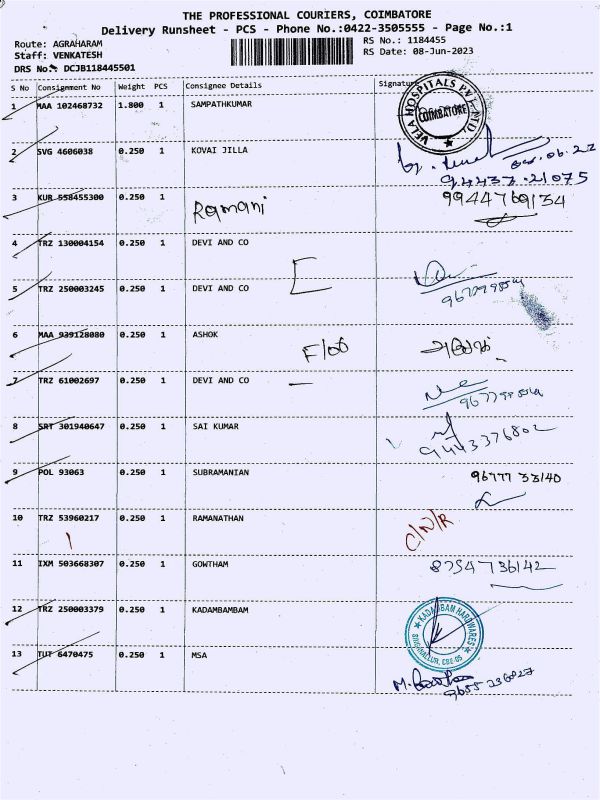 THE PROFESSIONAL COURIERS, COIMBATORE
Delivery Runsheet - PCS - Phone No.:0422-3505555 - Page No.:1
Route: AGRAHARAM
RS No.: 1184455
Staff: VENKATESH
RS Date: 08-Jun-2023
DRS No. DCJB118445501
S No Consignment No Weight PCS Consignee Details Signature
1 MAA 102468732 1.800 1 SAMPATHKUMAR
VELA HOSPITALS PVT LTD.
COIMBATORE
2 SVG 4606038 0.250 1 KOVAI JILLA
94437-21075
3 KUR 558455300 0.250 1 Ramani 9944769134
4 TRZ 130004154 0.250 1 DEVI AND CO
5 TRZ 250003245 0.250 1 DEVI AND CO
6 MAA 939128080 0.250 1 ASHOK
7 TRZ 61002697 0.250 1 DEVI AND CO
8 SRT 301940647 0.250 1 SAI KUMAR 9443376802
9 POL 93063 0.250 1 SUBRAMANIAN 96777 33140
10 TRZ 53960217 0.250 1 RAMANATHAN C/N/R
11 IXM 503668307 0.250 1 GOWTHAM 8754736142
12 TRZ 250003379 0.250 1 KADAMBAMBAM
KADAMBAM HARDWARES
13 TUT 6470475 0.250 1 MSA